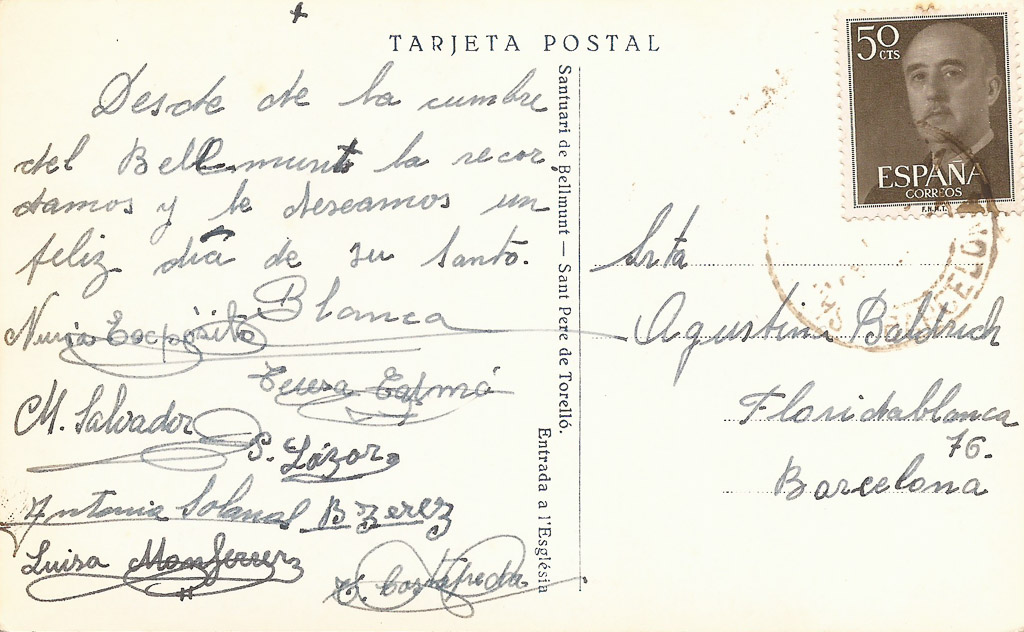 TARJETA POSTAL
Desde de la cumbre
del Bellmunt la recor
damos y le deseamos un
feliz día de su Santo.
Blanca
Nuria Expósito
Teresa
M. Salvador
S. Lázaro
Antonia Solanas B Zerez
Luisa Monferrer
Costafreda
Santuari de Bellmunt — Sant Pere de Torelló.
Entrada a l'Església
50 CTS
ESPAÑA
CORREOS
F.N.M.T.
Srta
Agustina Baldrich
Floridablanca
76.
Barcelona